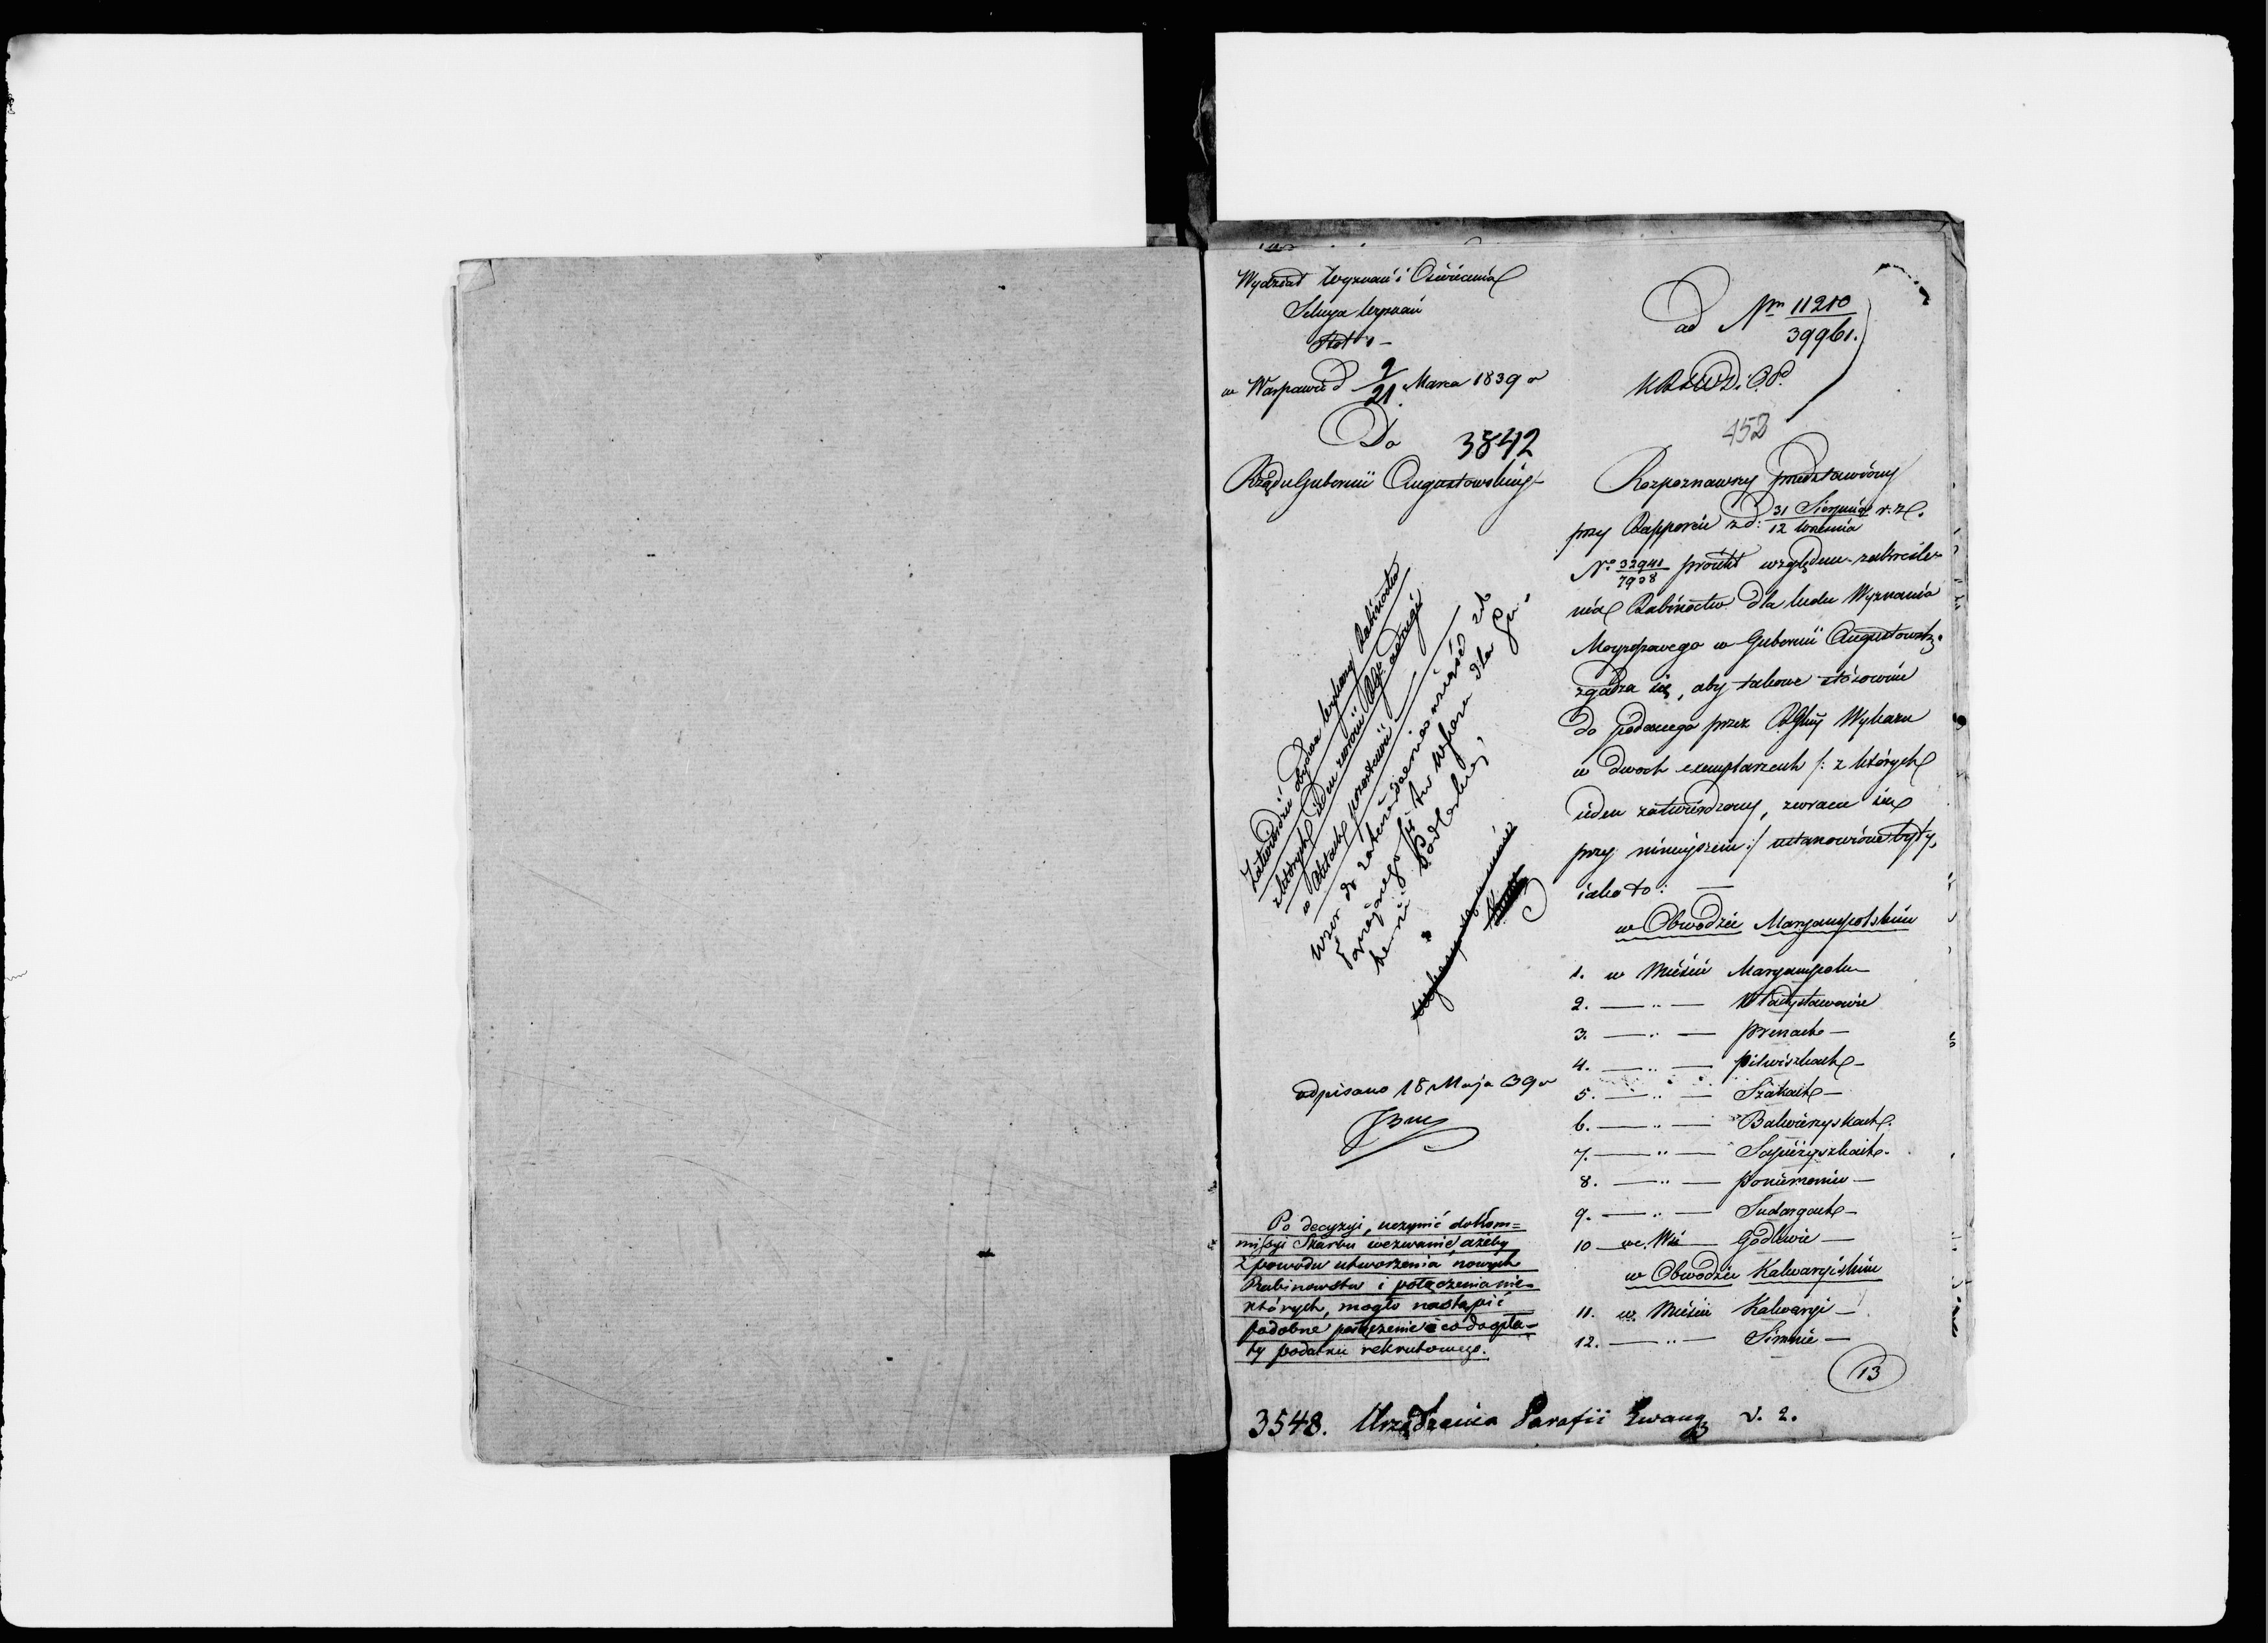 Wydział Wyznań i Oświecenia
Sekcya Wyznań
w Warszawie d 9/21 Marca 1839 r
Do 3842
Rządu Gubernii Augustowskiej
ad Nrm 11210/39961.
452
Rozpoznawszy przedstawiony
przy Rapporcie z d: 31 Sierpnia/12 Września r: z.
No 32941/7938 proiekt względem zakreśle-
nia Rabinactw dla ludu Wyznania
Moyżeszowego w Gubernii Augustowskiej
zgadza się, aby takowe stósownie
do podanego przez Rząd Gbny Wykazu
w dwoch exemplarzach /: z których
ieden zatwierdzony, zwraca się
przy ninieyszem :/ ustanowione były,
iako to: —
w Obwodzie Maryampolskim
1. w Mieście Maryampolu —
2. — " — Władysławowie
3. — " — Prenach —
4. — " — Pilwiszkach —
5. — " — Szakach —
6. — " — Balwierzyszkach.
7. — " — Sapieżyszkach.
8. — " — Poniemoniu —
9. — " — Sudargach —
10 — we Wsi — Godlewie —
w Obwodzie Kalwaryiskim
11. w Mieście Kalwaryi —
12. — " — Simnie —
13
Zatwierdzić obydwa wykazy Rabinactw
z których ieden zwrócić Rz. Gu. a drugi
w Aktach pozostawić
Wzór do zatwierdzenia wziąść z
w wykazu dla Gu-
bernii Podlaskiej
odpisano 18 Maja 39 r
Po decyzyi, uczynić do Kom=
missyi Skarbu wezwanie, ażeby
z powodu utworzenia nowych
Rabinowstw i połączenia nie-
których, mogło nastąpić
podobne połączenie co do opła-
ty podatku rekrutowego.
3548. Urządzenia Parafii Ewang v. 2.